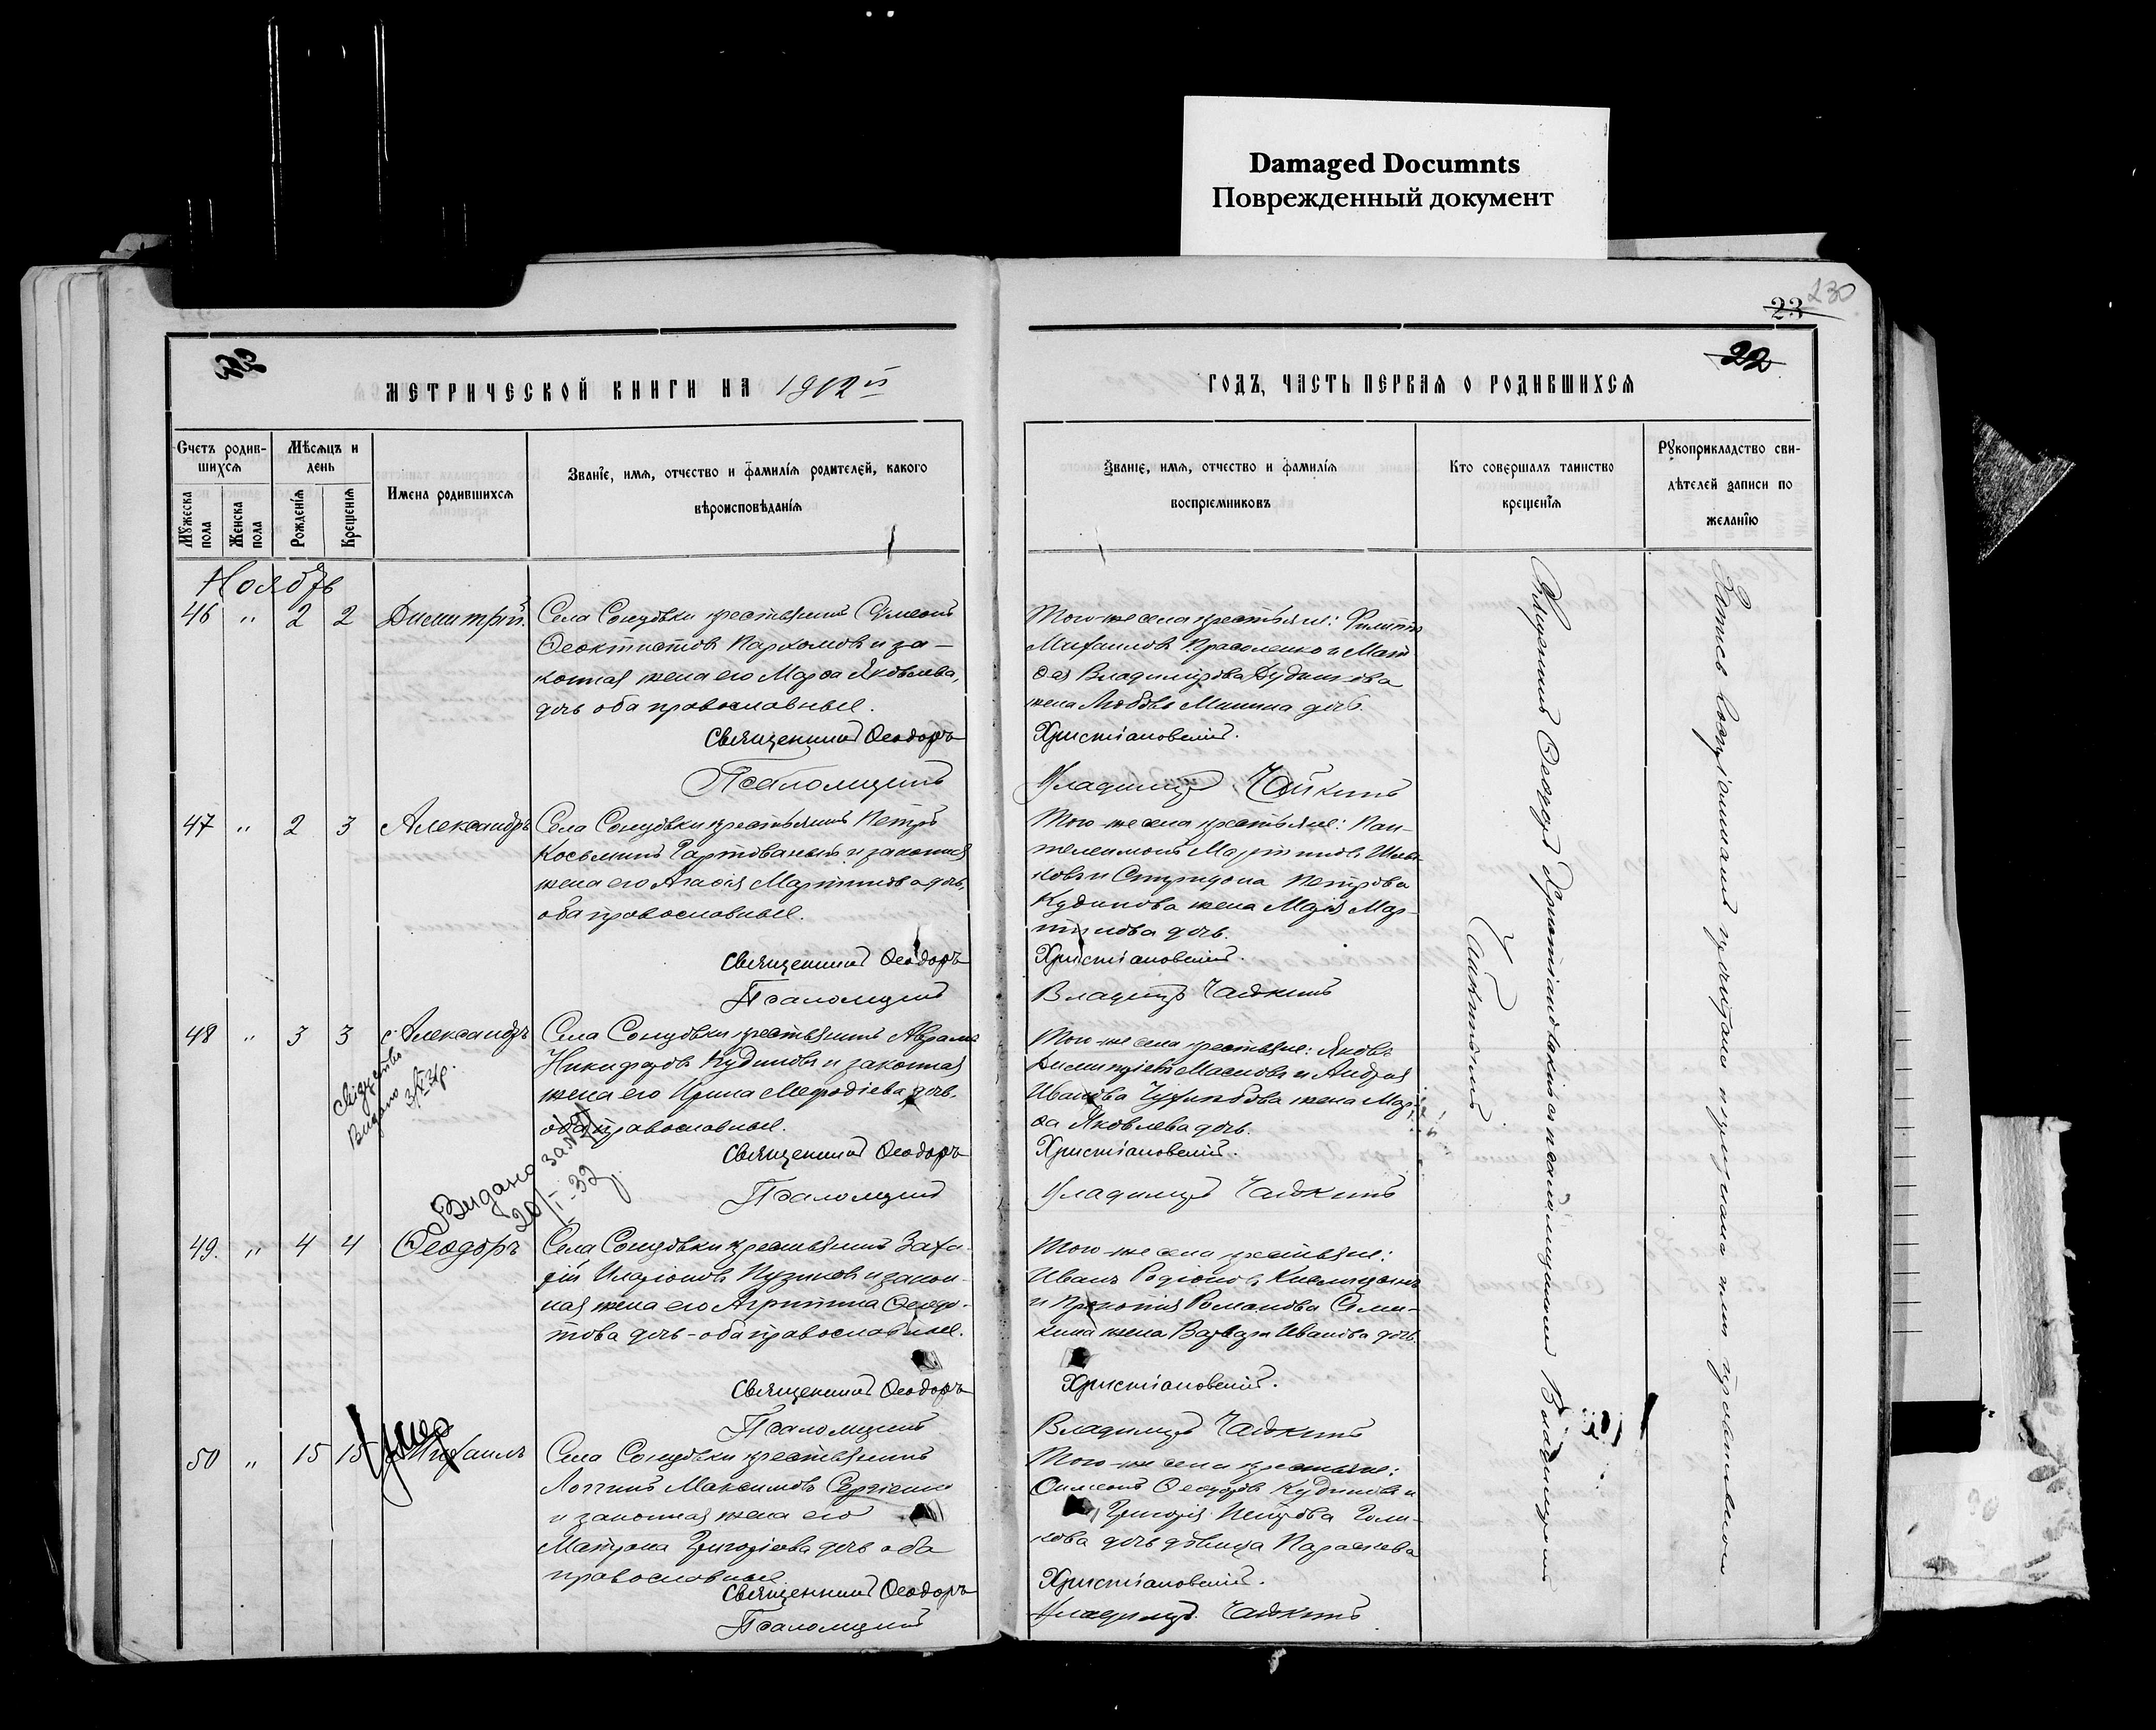 Damaged Documnts
Поврежденный документ
230
23
22
МЕТРИЧЕСКОЙ КНИГИ НА 1912й
ГОДЪ, ЧАСТЬ ПЕРВАЯ О РОДИВШИХСЯ
Счетъ родив-
шихся
Мѣсяцъ и
день
Мужеска
пола
Женска
пола
Рожденїя
Крещенїя
Имена родившихся
Званїе, имя, отчество и фамилїя родителей, какого
вѣроисповѣданїя
Званїе, имя, отчество и фамилїя
воспрїемниковъ
Кто совершалъ таинство
крещенїя
Рукоприкладство сви-
дѣтелей записи по
желанїю
Ноябрь
46 " 2 2 Димитрій.
Села Сонцовки крестьянинъ Симеонъ
Ѳеоктистовъ Пархомовъ и за-
конная жена его Марѳа Яковлева,
дочь оба православные.
Священникъ Ѳеодоръ
Псаломщикъ
Того-же села крестьяне: Филиппъ
Михаиловъ и Мат
ѳея Владимірова
жена Любовь Минина дочь.
Христіановскій.
Владимиръ Чайкинъ
47 " 2 3 Александръ
Села Сонцовки крестьянинъ Петръ
Косьминъ и законная
жена его Агафія Мартинова дочь,
оба православные.
Священникъ Ѳеодоръ
Псаломщикъ
Того-же села крестьяне: Пан-
телеимонъ Мартиновъ
и Спиридона Петрова
Кудинова жена Марія Мар-
тинова дочь.
Христіановскій.
Владимиръ Чайкинъ
48 " 3 3 Александръ
Видано
Села Сонцовки крестьянинъ Аврамъ
Никифоровъ Кудиновъ и законная
жена его Ирина Меѳодіева дочь,
оба православные.
Священникъ Ѳеодоръ
Псаломщикъ
Того-же села крестьяне: Яковъ
Димитріевъ Масловъ и Андрея
Иванова жена Мар-
ѳа Яковлева дочь.
Христіановскій.
Владимиръ Чайкинъ
Видано
20/I-32 р.
49. " 4 4 Ѳеодоръ
Села Сонцовки крестьянинъ Заха-
рій Иларіоновъ Пузиковъ и закон-
ная жена его Агриппина Ѳеодо-
това дочь - оба православные.
Священникъ Ѳеодоръ
Псаломщикъ
Того-же села крестьяне:
Иванъ Родіоновъ
и Прокопія Романова Семи-
кина жена Варвара Иванова дочь.
Христіановскій.
Владимиръ Чайкинъ
Умер
50 " 15 15 Михаилъ
Села Сонцовки крестьянинъ
Логгинъ Максимовъ Сергіенко
и законная жена его
Матрона Григоріева дочь оба
православные
Священникъ Ѳеодоръ
Псаломщикъ
Того-же села крестьяне:
Симеонъ Ѳеодоровъ Кудиновъ и
Григорія Петрова Голи-
кова дочь дѣвица Параскева
Христіановскій.
Владимиръ Чайкинъ
Священникъ Ѳеодоръ Христіановскій съ псаломщикомъ Владимиромъ
Чайкинымъ